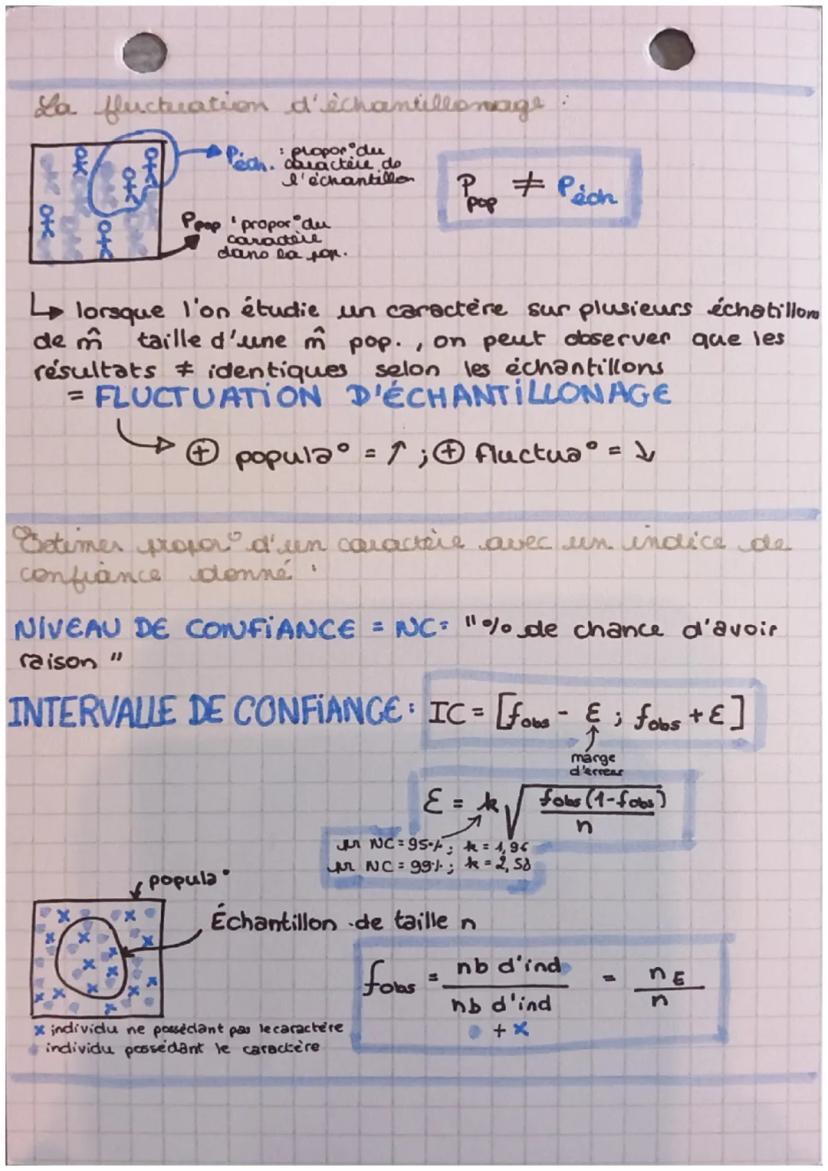 La fluctuation d'échantillonage :
Péch. : propor° du
caractère de
l'échantillon
Ppop ≠ Péch
Ppop : propor° du
caractère
dans la pop.
↳ lorsque l'on étudie un caractère sur plusieurs échatillons
de m̂ taille d'une m̂ pop., on peut observer que les
résultats ≠ identiques selon les échantillons
= FLUCTUATION D'ÉCHANTILLONAGE
↳ ⊕ popula° = ↑ ; ⊕ fluctua° = ↓
Estimer propor° d'un caractère avec un indice de
confiance donné :
NIVEAU DE CONFIANCE = NC = "% de chance d'avoir
raison"
INTERVALLE DE CONFIANCE : IC = [fobs - Ɛ ; fobs + Ɛ]
marge
d'erreur
Ɛ = k √(fobs (1-fobs) / n)
sur NC = 95% ; k = 1,96
sur NC = 99% ; k = 2,58
popula°
Échantillon de taille n
fobs = nb d'ind• / nb d'ind • + x = nE / n
x individu ne possédant pas le caractère
• individu possédant le caractère